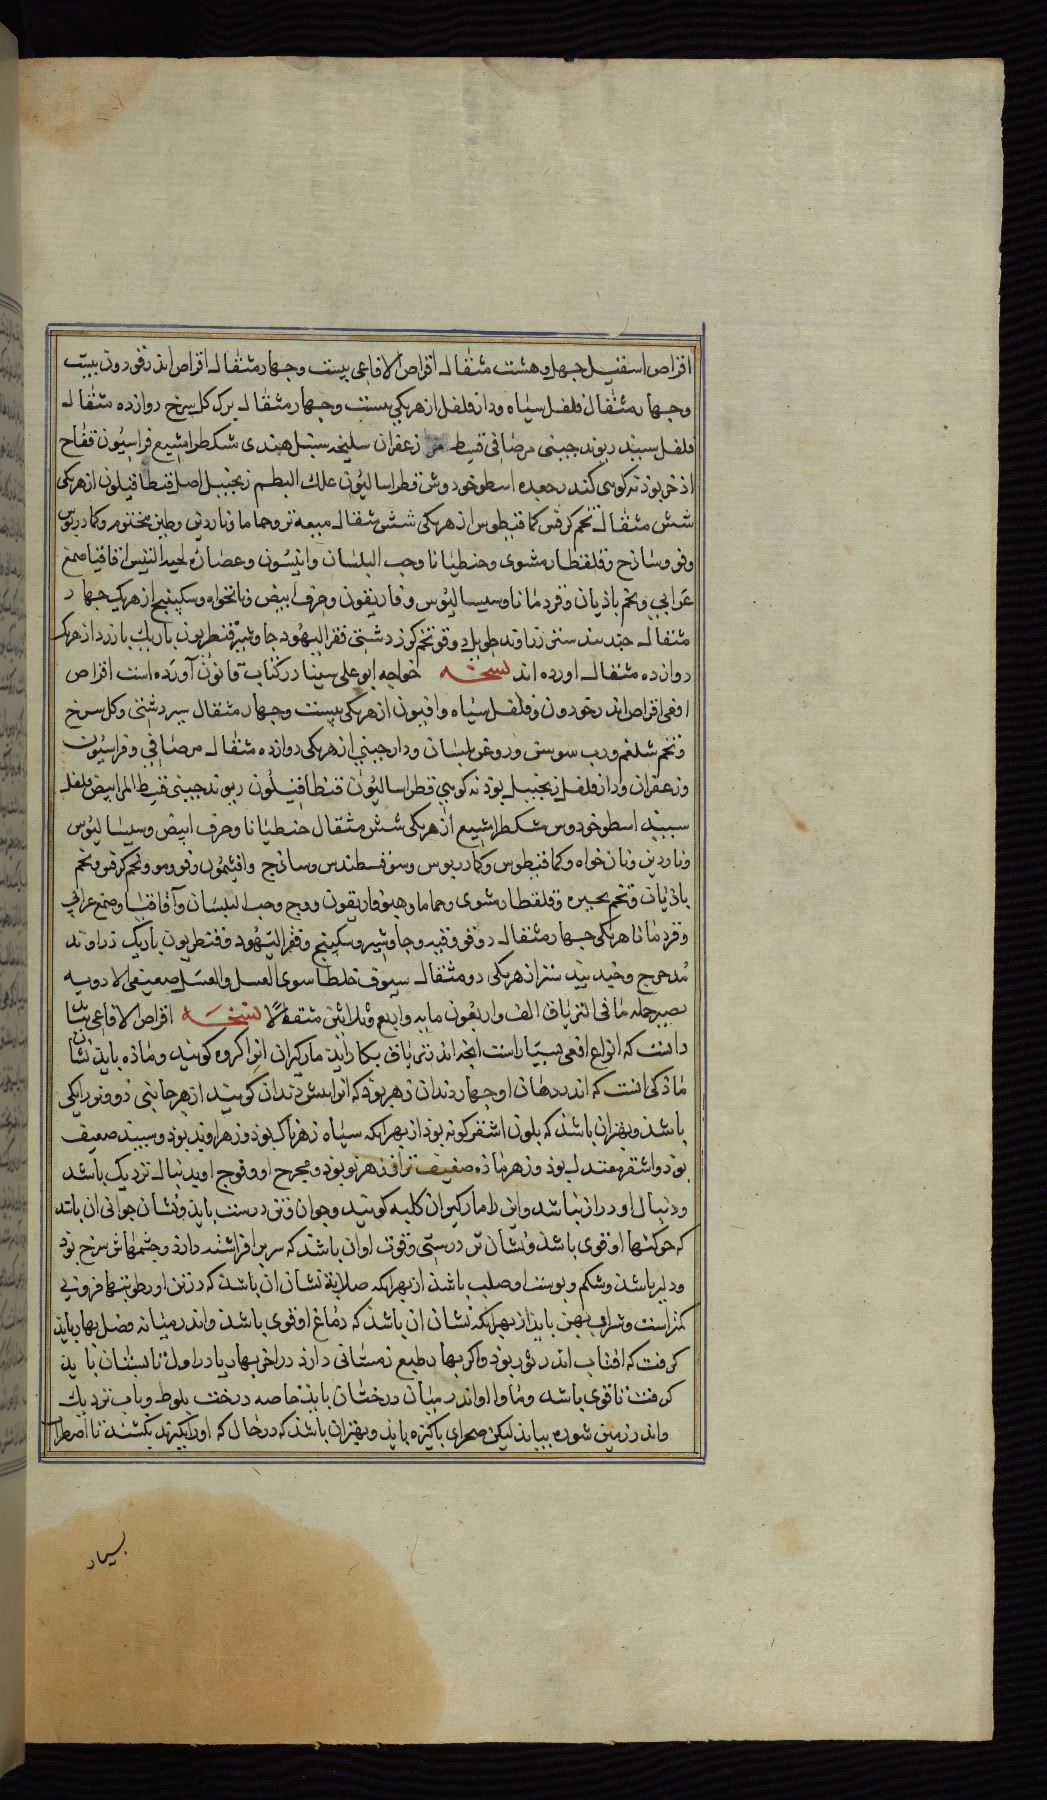 اقراص اسقیل جهل و هشت مثقال اقراص الافاعی بیست و جهار مثقال اقراص اندروخورون بیست
وجهار مثقال فلفل سیاه و دارفلفل از هریکی بیست و جهار مثقال برک کل سرخ دوازده مثقال
فلفل سبید ریوند جینی مرصافی قسط زعفران سلیخه سنبل هندی مشکطرامشیع فراسیون فقاح
اذخر بوذنه کوهی کندر جعده اسطوخودوش فطراسالیون علک البطم زنجبیل اصل قنطافیلون از هریکی
شش مثقال تخم کرفس کمافیطوس از هریکی شش مثقال میعه تر و حماما و ناردین و طین مختوم و کمادریوس
وفو و ساذج و قلقطار مشوی و جنطیانا و حب البلسان و انیسون و عصاره لحیه التیس اقاقیا صمغ
عرابی و تخم باذیان و قردمانا و سیسالیوس و فاریقون و حرف ابیض و نانخواه و سکبینج از هریک جهار
مثقال جند بیدستر زراوند طویل دوقو تخم کزر دشتی قفر الیهود جاوشیر قنطریون باریک بارزد از هریک
دوازده مثقال اورده اند نسخه خواجه ابو علی سینا در کتاب قانون آورده است اقراص
افعی اقراص اندرخورون و فلفل سیاه و افیون از هریکی بیست و جهار مثقال سیر دشتی و کل سرخ
و تخم شلغم و رب سوس و روغن بلسان و دارجینی از هریکی دوازده مثقال مرصافی و فراسیون
و زعفران و دارفلفل زنجبیل بوذنه کوهی فطراسالیون قنطافیلون ریوند جینی قسط المر ابیض فلفل
سبید اسطوخودوس مشکطرامشیع از هریکی شش مثقال جنطیانا و حرف ابیض و سیسالیوس
و ناردین و نان خواه و کمافیطوس و کمادریوس و ساذج و افیثمون و فو و مو و تخم کرفس و تخم
باذیان و تخم و قلقطار مشوی و حماما و فاریقون و وج و حب البلسان و آقاقیا و صمغ عرابی
و قردمانا هریکی جهار مثقال دوقو و جاوشیر و سکبینج و قفر الیهود و قنطریون باریک زراوند
مدحرج و جند بیدستر از هریکی دو مثقال سیوف خلطا سوی العسل والعسل ضعیفی الادویه
یصیر جمله ما فی التریاق الف و اربعون مایه و اربع و ثلاثین مثقالا نسخه اقراص الافاعی بباید
دانست که انواع افعی بسیار است انجه اندر تریاق بکار آید مارکیران انوا کروه کویند و ماذه باید نشان
ماذکی انست که اندر دهان او جهار دندان زهر بوذ که انوا نیش دندان کویند از هر جانبی دو و نر را یکی
باشد و بهتر ان باشد که بلون اشقر کونه بوذ از بهر انکه سیاه زهرناک بوذ و زهر او بد بوذ و سبید ضعیف
بوذ و اشقر معتدل بوذ و زهر ماذه ضعیف تر از زهر نر بوذ و مخرج او و فوج او بدنبال نزدیک باشد
و دنبال او دراز نباشد و این را مارکیران کلیه کویند و جوان و تن درست باید و نشان جوانی ان باشد
که حرکتها او قوی باشد و نشان تن درستی و قوت او ان باشد که سر بر افراشته دارد و جشمهاش سرخ بوذ
و دلیر باشد و شکم و بوست او صلب باشد از بهر انکه صلابة نشان ان باشد که در تن او رطوبتها فزونی
کمتر است و سر او بهن باید از بهر انکه نشان ان باشد که دماغ او قوی باشد و اندر میانه فصل بهار باید
کرفت که افتاب اندر ثور بوذ و اکر بهار طبع زمستانی دارذ در اخر بهار یا در اول تابستان باید
کرفت تا قوی باشد و ماوا او اندر میان درختان باید خاصه درخت بلوط و باب نزدیک
و اندر زمین شوره بیابد لیکن صحرای باکیزه باید و بهتر ان باشد که در حال که او را بکیرند بکشند تا اضطراب
بسیار